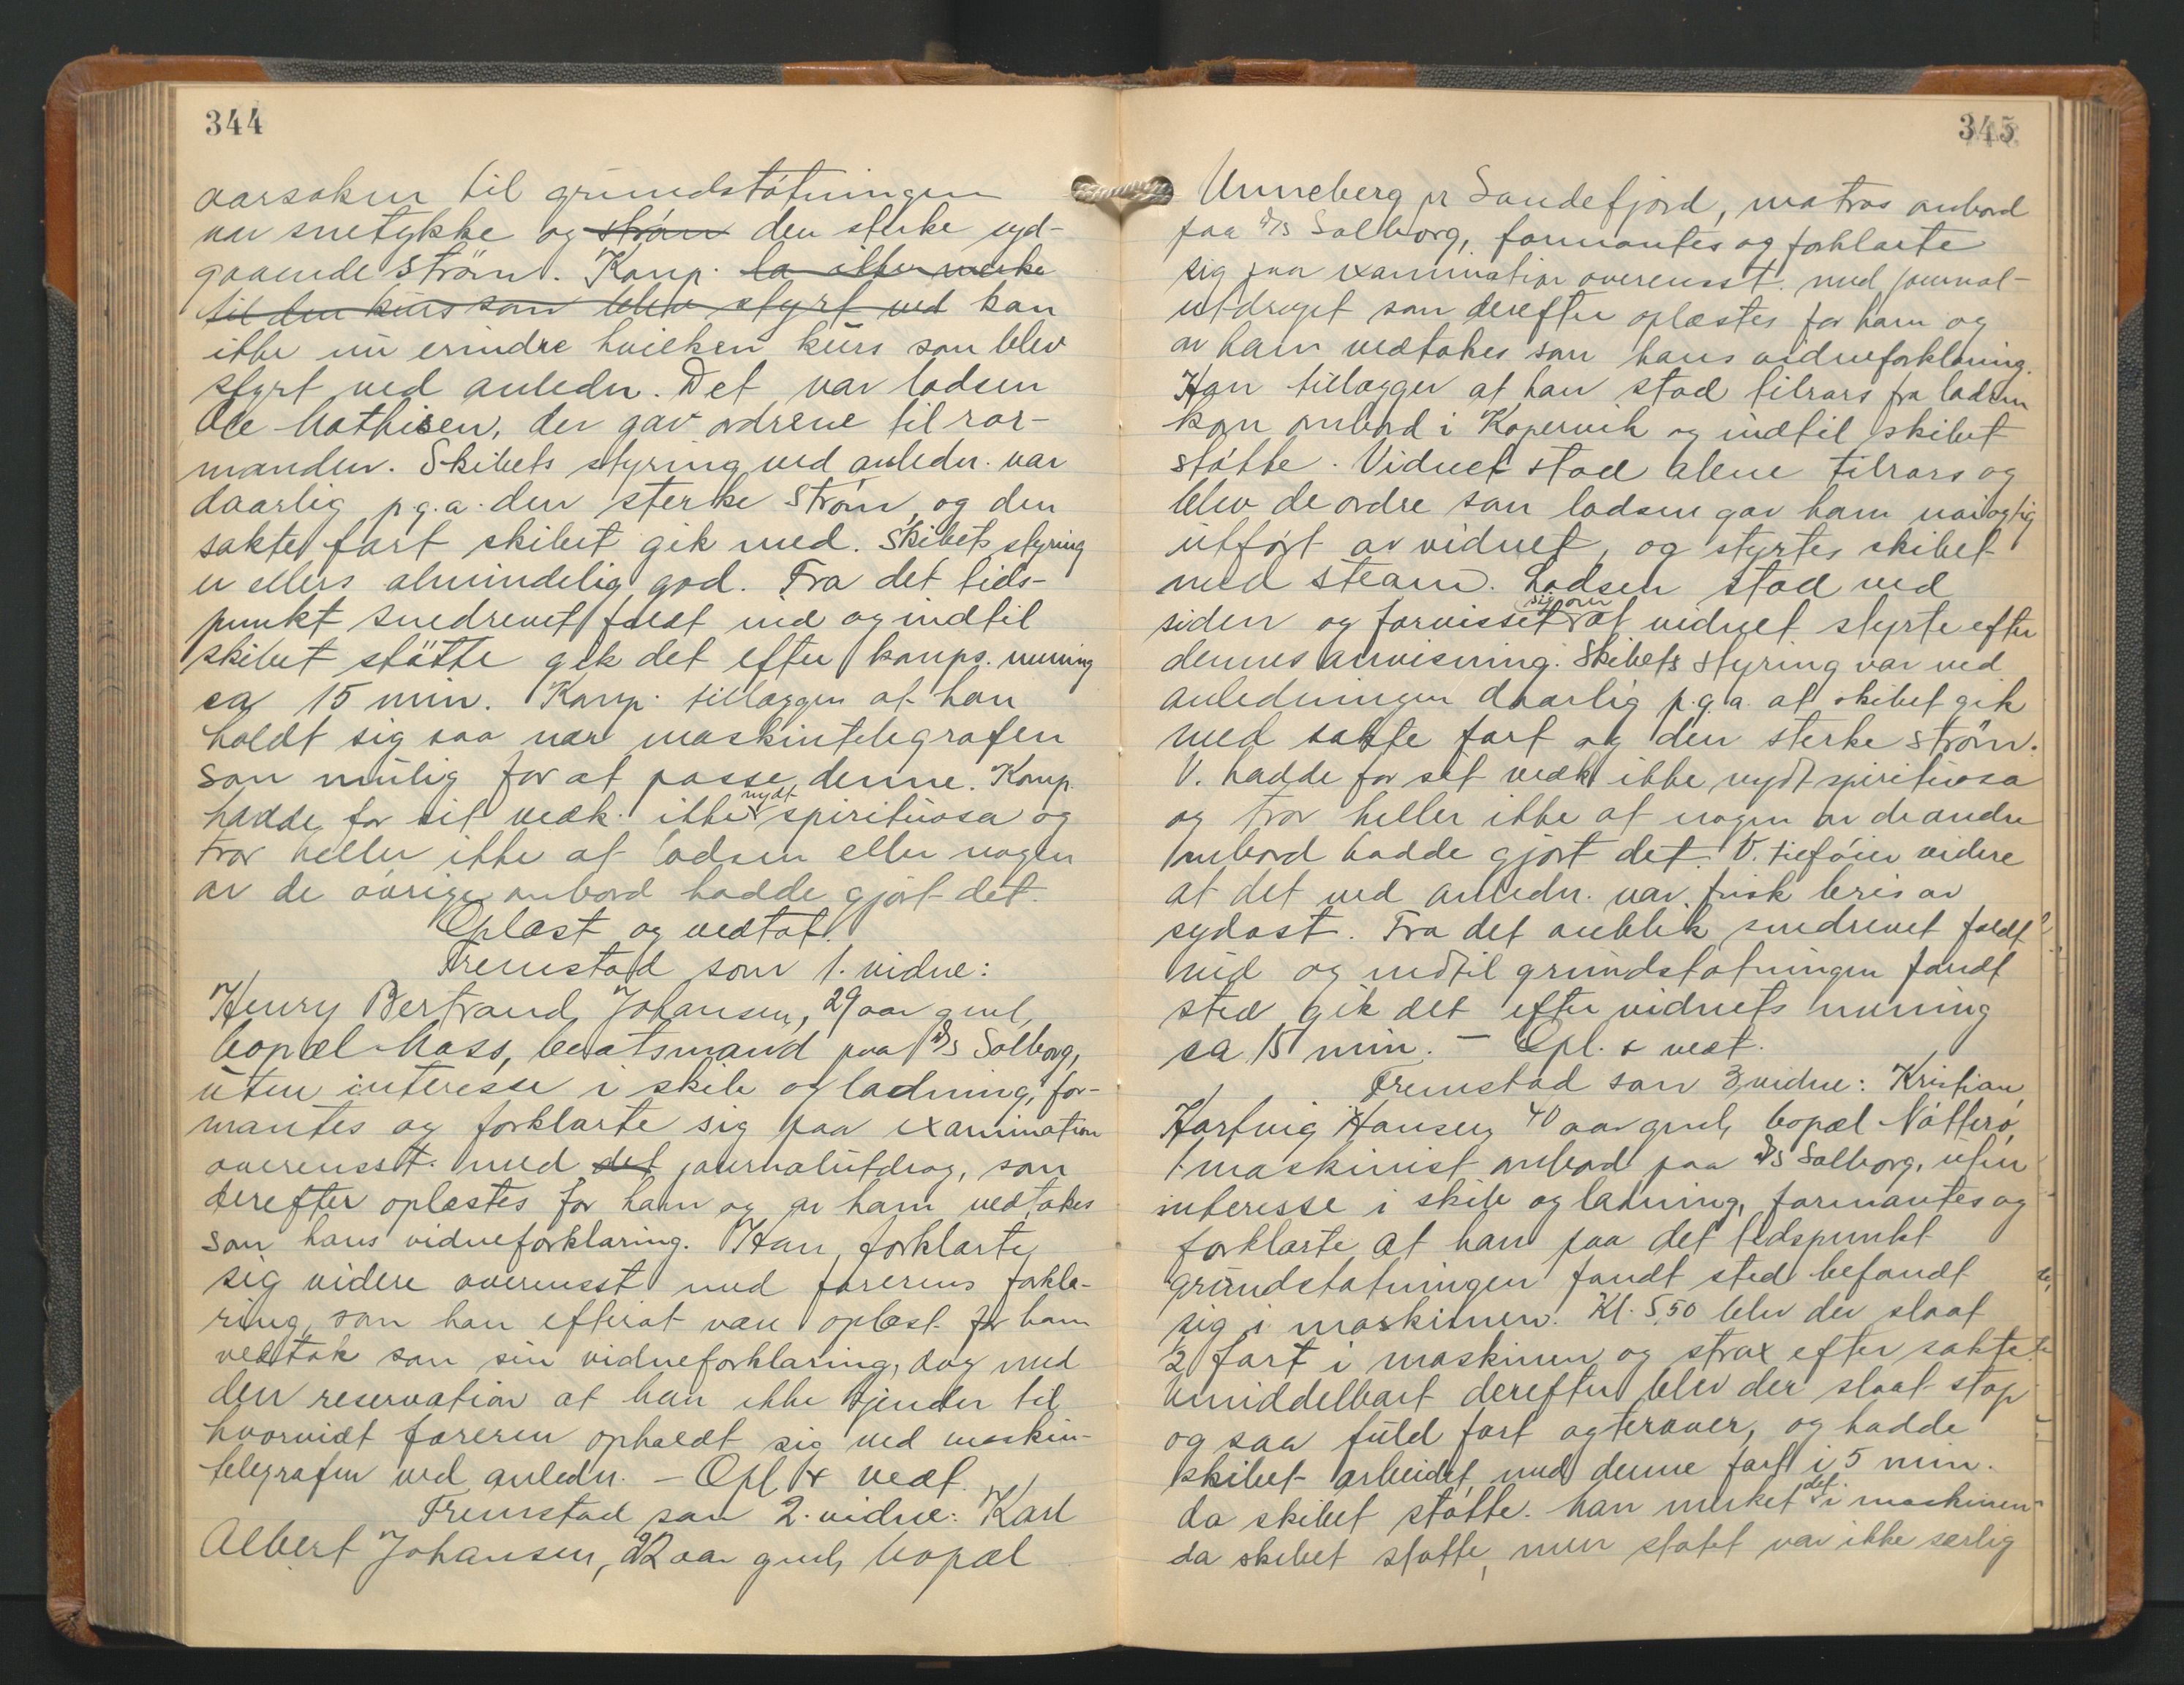 344
aarsaken til grundstøtningen
var snetykke og strøm den sterke syd-
gaaende strøm. Komp. la ikke merke
til den kurs som blev styrt ved kan
ikke nu erindre hvilken kurs som blev
styrt ved anledn. Det var lodsen
Ole Mathisen, der gav ordrene til ror-
manden. Skibets styring ved anledn. var
daarlig p.g.a. den sterke strøm, og den
sakte fart skibet gik med. Skibets styring
er ellers almindelig god. Fra det tids-
punkt snedrevet faldt ind og indtil
skibet støtte gik det efter komps. mening
ca 15 min. Komp. tillægger at han
holdt sig saa nær maskintelegrafen
som mulig for at passe denne. Komp.
hadde for sit vedk. ikke nydt spirituosa og
tror heller ikke at lodsen eller nogen
av de øvrige ombord hadde gjort det.
Oplæst og vedtat.
Fremstod som 1. vidne:
Henry Bertrand Johansen, 29 aar gml,
bopæl Moss, baatsmand paa D/S Solborg,
uten interesse i skib og ladning, for-
mantes og forklarte sig paa examination
overensst. med det journalutdrag, som
derefter oplæstes for ham og av ham vedtokes
som hans vidneforklaring. Han forklarte
sig videre overensst med førerens forkla-
ring, som han efterat være oplæst for ham
vedtok som sin vidneforklaring, dog med
den reservation at han ikke kjender til
hvorvidt føreren opholdt sig ved maskin-
telegrafen ved anledn. - Opl & vedt.
Fremstod som 2. vidne: Karl
Albert Johansen, 22 aar gml, bopæl
345
Unneberg pr Sandefjord, matros ombord
paa D/S Solborg, formantes og forklarte
sig paa examination overensst. med journal-
utdraget som derefter oplæstes for ham og
av ham vedtokes som hans vidneforklaring.
Han tillægger at han stod tilrors fra lodsen
kom ombord i Kopervik og indtil skibet
støtte. Vidnet stod alene tilrors og
blev de ordre som lodsen gav ham nøiagtig
utført av vidnet, og styrtes skibet
med steam. Lodsen stod ved
siden og forvisset sig om at vidnet styrte efter
dennes anvisning. Skibets styring var ved
anledningen daarlig p.g.a. at skibet gik
med sakte fart og den sterke strøm.
V. hadde for sit vedk ikke nydt spirituosa
og tror heller ikke at nogen av de andre
ombord hadde gjort det. V. tilføier videre
at det ved anledn. var frisk bris av
sydost. Fra det øieblik snedrevet faldt
ind og indtil grundstøtningen fandt
sted gik det efter vidnets mening
ca 15 min. - Opl. & vedt.
Fremstod som 3 vidne: Kristian
Hartvig Hansen, 40 aar gml, bopæl Nøtterø,
1 maskinist ombord paa D/S Solborg, uten
interesse i skib og ladning, formantes og
forklarte at han paa det tidspunkt
grundstøtningen fandt sted befandt
sig i maskinen. Kl. 5.50 blev der slaat
1/2 fart i maskinen og strax efter sakte.
Umiddelbart derefter blev der slaat stop
og saa fuld fart agterover, og hadde
skibet arbeidet med denne fart i 5 min.
da skibet støtte. Han merket det i maskinen
da skibet støtte, men støtet var ikke særlig